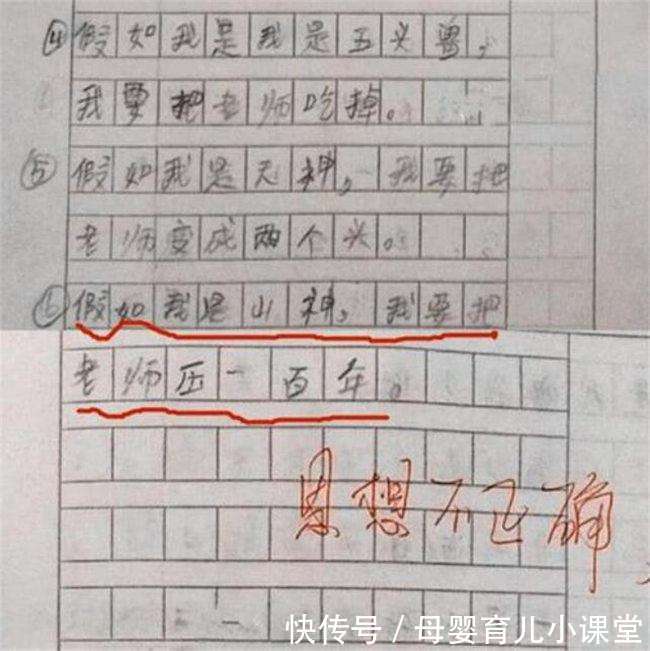 ④假如我是我是五头兽，
我要把老师吃掉。
⑤假如我是天神，我要把
老师变成两个头。
⑥假如我是山神，我要把
老师压一百年。
思想不正确
快传号/母婴育儿小课堂